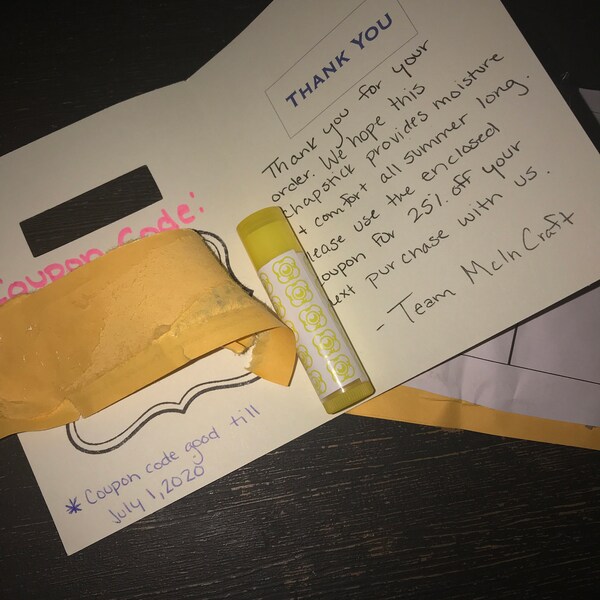 Coupon Code:
* Coupon code good till
July 1, 2020
THANK YOU
Thank you for your
order. We hope this
chapstick provides moisture
+ comfort all summer long.
Please use the enclosed
coupon for 25% off your
next purchase with us.
- Team McInCraft